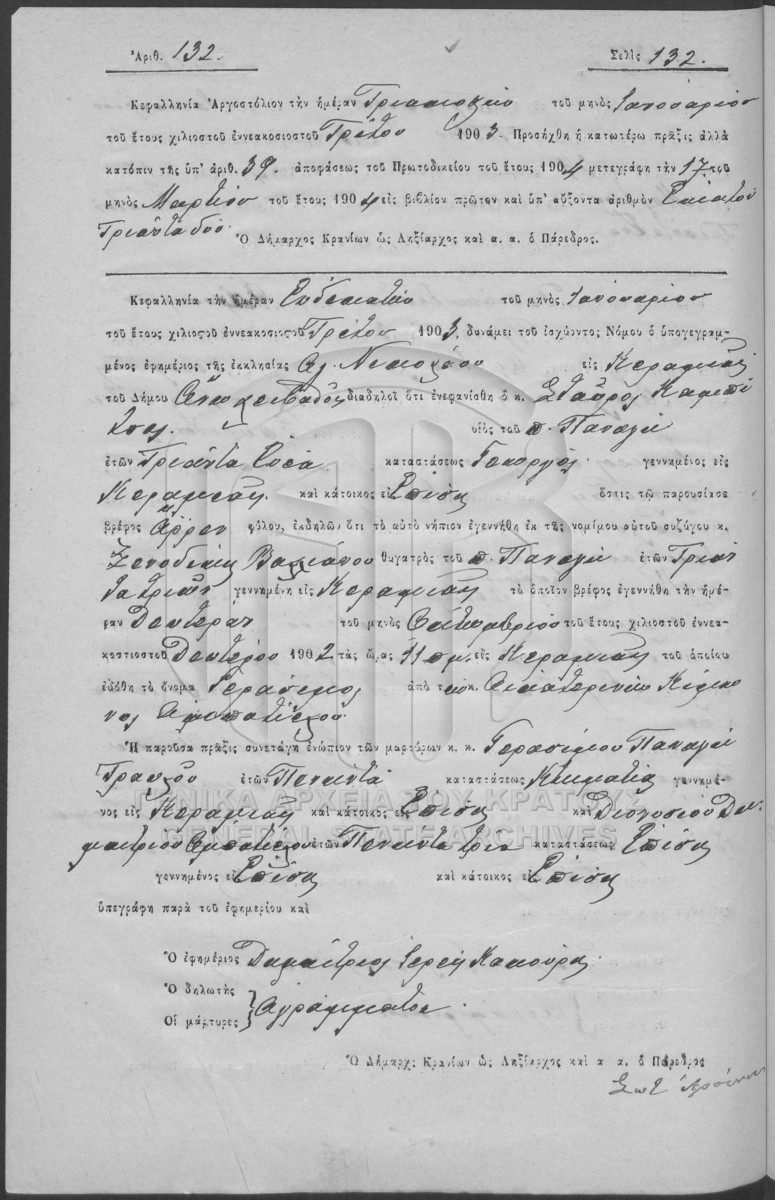 Ἀριθ. 132. Σελὶς 132.
Κεφαλληνία Ἀργοστόλιον τὴν ἡμέραν Τριακοστὴν τοῦ μηνὸς Ἰανουαρίου
τοῦ ἔτους χιλιοστοῦ ἐννεακοσιοστοῦ Τρίτου 1903. Προσήχθη ἡ κατωτέρω πρᾶξις ἀλλὰ
κατόπιν τῆς ὑπ' ἀριθ. 39. ἀποφάσεως τοῦ Πρωτοδικείου τοῦ ἔτους 1904 μετεγράφη τὴν 17 τοῦ
μηνὸς Μαρτίου τοῦ ἔτους 1904 εἰς βιβλίον πρῶτον καὶ ὑπ' αὔξοντα ἀριθμὸν Ἑκατὸν
Τριάντα δύο.
Ὁ Δήμαρχος Κρανίων ὡς Ληξίαρχος καὶ α. α. ὁ Πάρεδρος.
Κεφαλληνία τὴν ἡμέραν Ἑνδεκάτην τοῦ μηνὸς Ἰανουαρίου
τοῦ ἔτους χιλιοστοῦ ἐννεακοσιοστοῦ Τρίτου 1903. δυνάμει τοῦ ἰσχύοντος Νόμου ὁ ὑπογεγραμ-
μένος ἐφημέριος τῆς ἐκκλησίας Ἁγ. Νικολάου εἰς Κεραμειὰς
τοῦ Δήμου διαδηλοῖ ὅτι ἐνεφανίσθη ὁ κ. Σταῦρος
υἱὸς τοῦ π. Παναγῆ
ἐτῶν Τριάντα ἐννέα καταστάσεως Γεωργὸς γεννημένος εἰς
Κεραμειὰς καὶ κάτοικος εἰς Ἐπίσης ὅστις τῷ παρουσίασε
βρέφος Ἄρρεν φύλου, ἐκδηλῶν ὅτι τὸ αὐτὸ νήπιον ἐγεννήθη ἐκ τῆς νομίμου αὐτοῦ συζύγου κ.
Ξενοδίκης θυγατρὸς τοῦ π. Παναγῆ ἐτῶν Τριάν
τα τριῶν γεννημένη εἰς Κεραμειὰς τὸ ὁποῖον βρέφος ἐγεννήθη τὴν ἡμέ-
ραν Δευτέραν τοῦ μηνὸς Ὀκτωμβρίου τοῦ ἔτους χιλιοστοῦ ἐννεα-
κοστιοστοῦ Δευτέρου 1902 τὰς ὥρας 11 π.μ. εἰς Κεραμειὰς τοῦ ὁποίου
ἐδόθη τὸ ὄνομα Γεράσιμος ἀπὸ τὴν κ. Αἰκατερίνην
Ἡ παροῦσα πρᾶξις συνετάγη ἐνώπιον τῶν μαρτύρων κ. κ. Γερασίμου Παναγῆ
ἐτῶν Πενῆντα καταστάσεως Κτηματίας γεννημέ-
νος εἰς Κεραμειὰς καὶ κάτοικος εἰς Ἐπίσης καὶ Διονυσίου Δη-
μητρίου ἐτῶν Πενῆντα τρία καταστάσεως Ἐπίσης
γεννημένος εἰς Ἐπίσης καὶ κάτοικος εἰς Ἐπίσης
ὑπεγράφη παρὰ τοῦ ἐφημερίου καὶ
Ὁ ἐφημέριος Δημήτριος Ἱερεὺς
Ὁ δηλωτὴς
Οἱ μάρτυρες Ἀγράμματοι.
Ὁ Δήμαρχς Κρανίων ὡς Ληξίαρχος καὶ α α. ὁ Πάρεδρος
ΓΕΝΙΚΑ ΑΡΧΕΙΑ ΤΟΥ ΚΡΑΤΟΥΣ
GENERAL STATE ARCHIVES